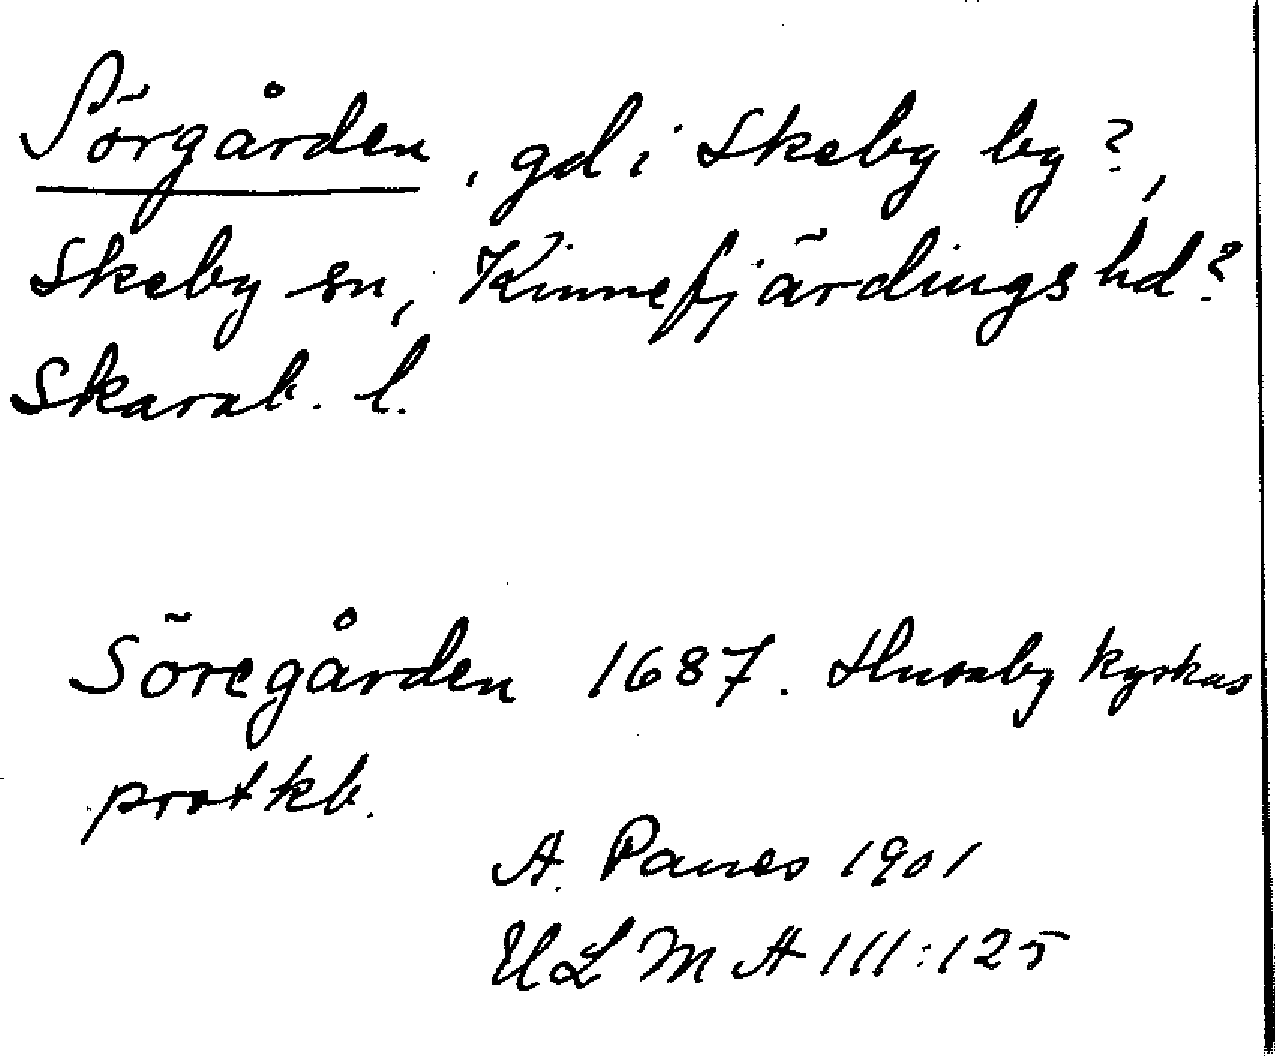 Sörgården, gd i Skeby by?,
Skeby sn, Kinnefjärdings hd?
Skarab. l.
Söregården 1687. Husaby kyrkas
protkb.
A. Panes 1901
ULMA 111:125